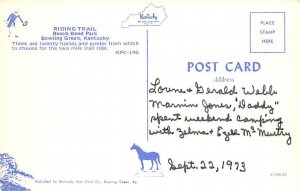 Kentucky
RIDING TRAIL
Beech Bend Park
Bowling Green, Kentucky
KPC-196
There are twenty horses and ponies from which
to choose for the two mile trail ride.
PLACE
STAMP
HERE
POST CARD
Address
Lorene & Gerald Webb
Marvin Jones, "Daddy"
spent weekend camping
with Zelma & Ezell McMurtry
Sept. 22, 1973
Published by Kentucky Post Card Co., Bowling Green, Ky.